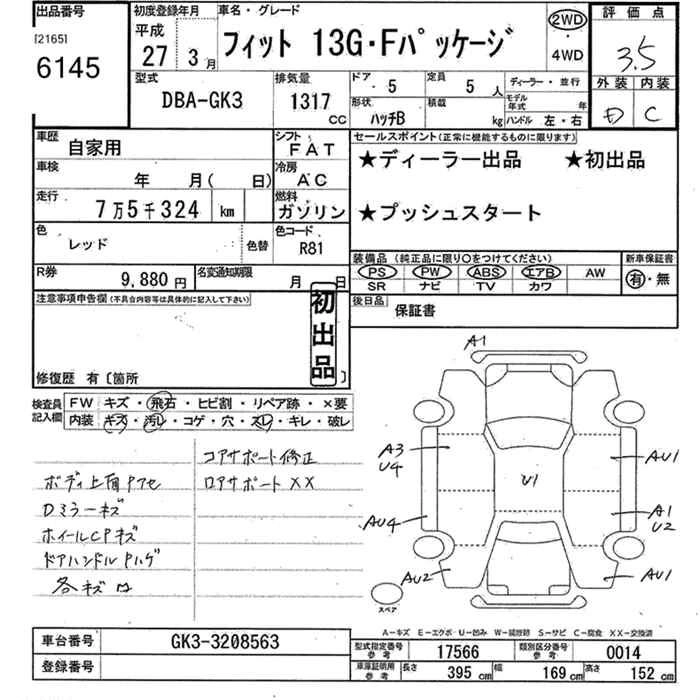 出品番号
[2165]
6145
初度登録年月
平成
27 3月
車名・グレード
フィット 13G・Fパッケージ
2WD
・
4WD
評価点
3.5
外装 内装
D C
型式
DBA-GK3
排気量
1317
CC
ドア 5
定員 5 人
ディーラー・並行
形状
ハッチB
積載 kg
モデル年式 年
ハンドル 左・右
車歴
自家用
シフト
FAT
車検
年 月( 日)
冷房
AC
走行
7万5千324 km
燃料
ガソリン
色
レッド
色替
色コード
R81
R券
9,880円
名変通知期限
月 日
セールスポイント(正常に機能するものに限ります)
★ディーラー出品 ★初出品
★プッシュスタート
装備品(純正品に限り○をつけてください)
新車保証書
PS PW ABS エアB AW
SR ナビ TV カワ
有・無
後日品
保証書
注意事項申告欄(不具合内容等は具体的に記入して下さい)
初出品
修復歴 有〔箇所 〕
検査員記入欄
FW キズ・飛石・ヒビ割・リペア跡・×要
内装 キズ・汚レ・コゲ・穴・スレ・キレ・破レ
コアサポート修正
ボディ上面Pアセ
ロアサポートXX
Dミラーキズ
ホイールCPキズ
ドアハンドルPハゲ
各キズ凹
A1
A3
U4
U1
AU1
AU4
A1
U2
AU2
AU1
スペア
A-キズ E-エクボ U-凹み W-補修跡 S-サビ C-腐食 XX-交換済
車台番号
GK3-3208563
登録番号
型式指定番号
参考
17566
類別区分番号
参考
0014
車庫証明用
参考
長さ 395 cm
幅 169 cm
高さ 152 cm